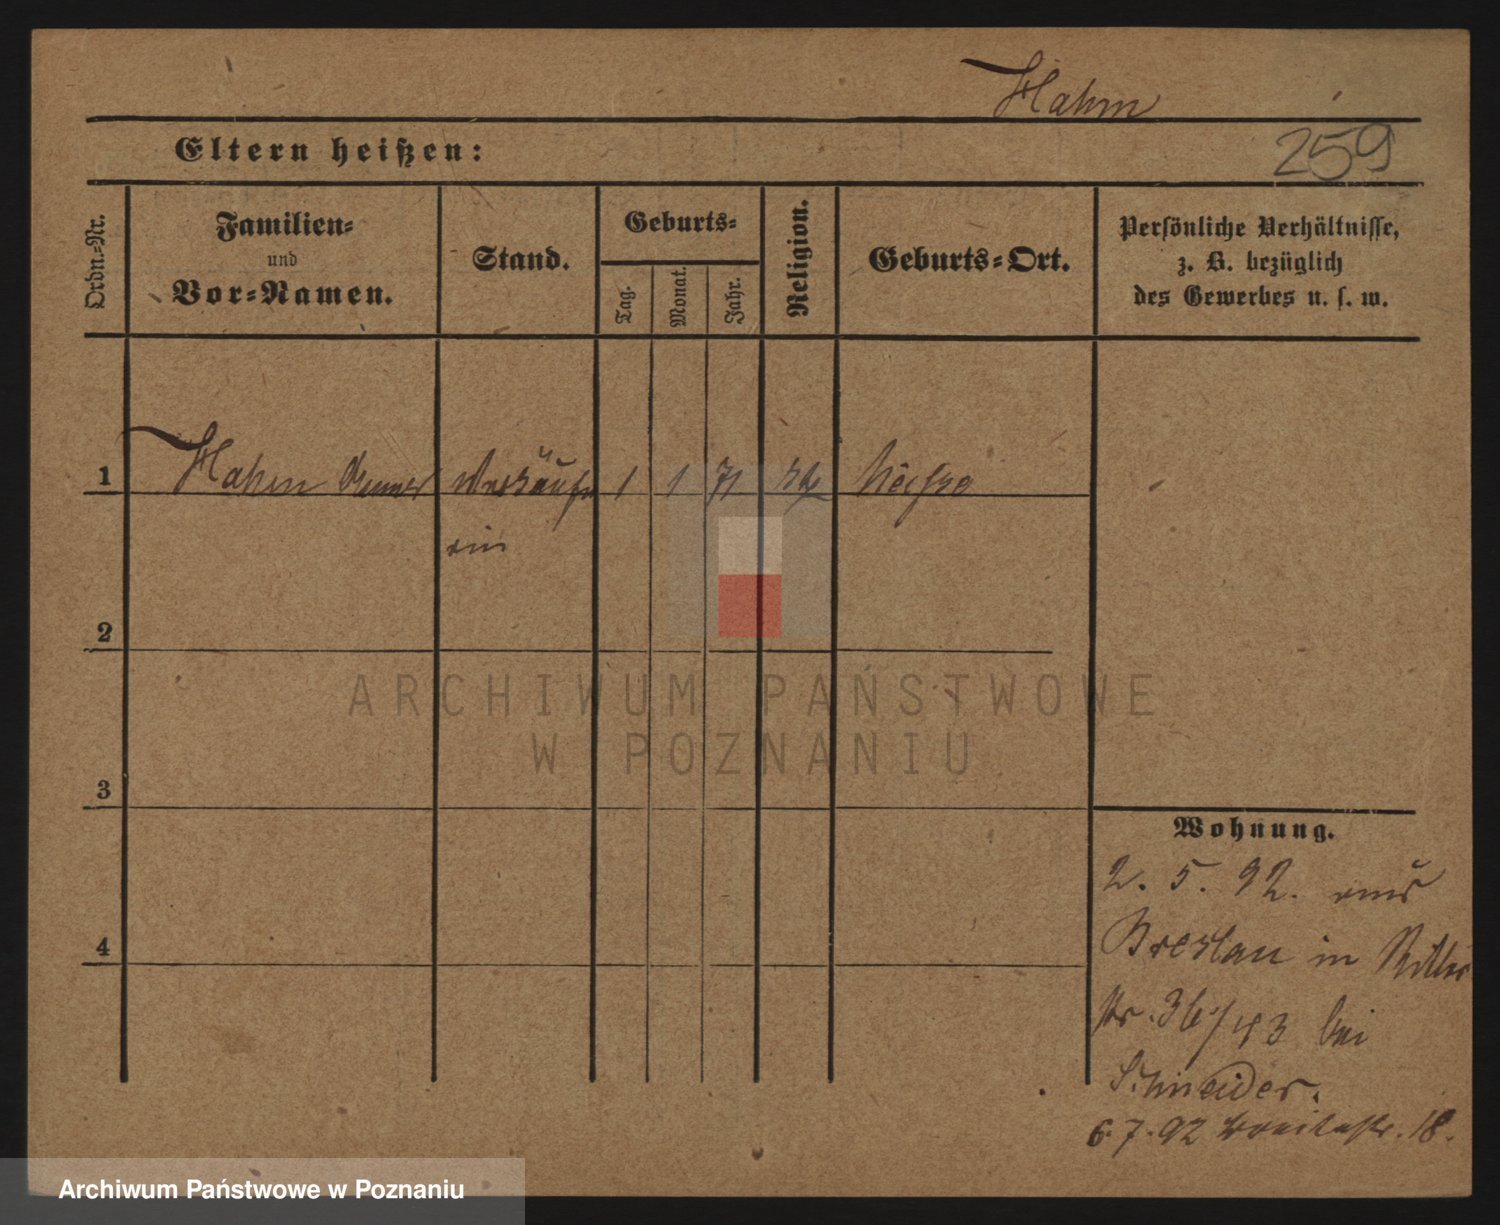 Hahm
259
Eltern heißen:
Ordn.-Nr.
Familien-
und
Vor-Namen.
Stand.
Geburts-
Tag.
Monat.
Jahr.
Religion.
Geburts-Ort.
Persönliche Verhältnisse,
z. B. bezüglich
des Gewerbes u. s. w.
1 Hahm Verkäufe 1 1 71 Neisse
rin
2
ARCHIWUM PAŃSTWOWE
W POZNANIU
3
Wohnung.
2. 5. 92. aus
Breslau in Ritter
4
str. 36/43 bei
Schneider.
6.7.92 Breitestr. 18.
Archiwum Państwowe w Poznaniu